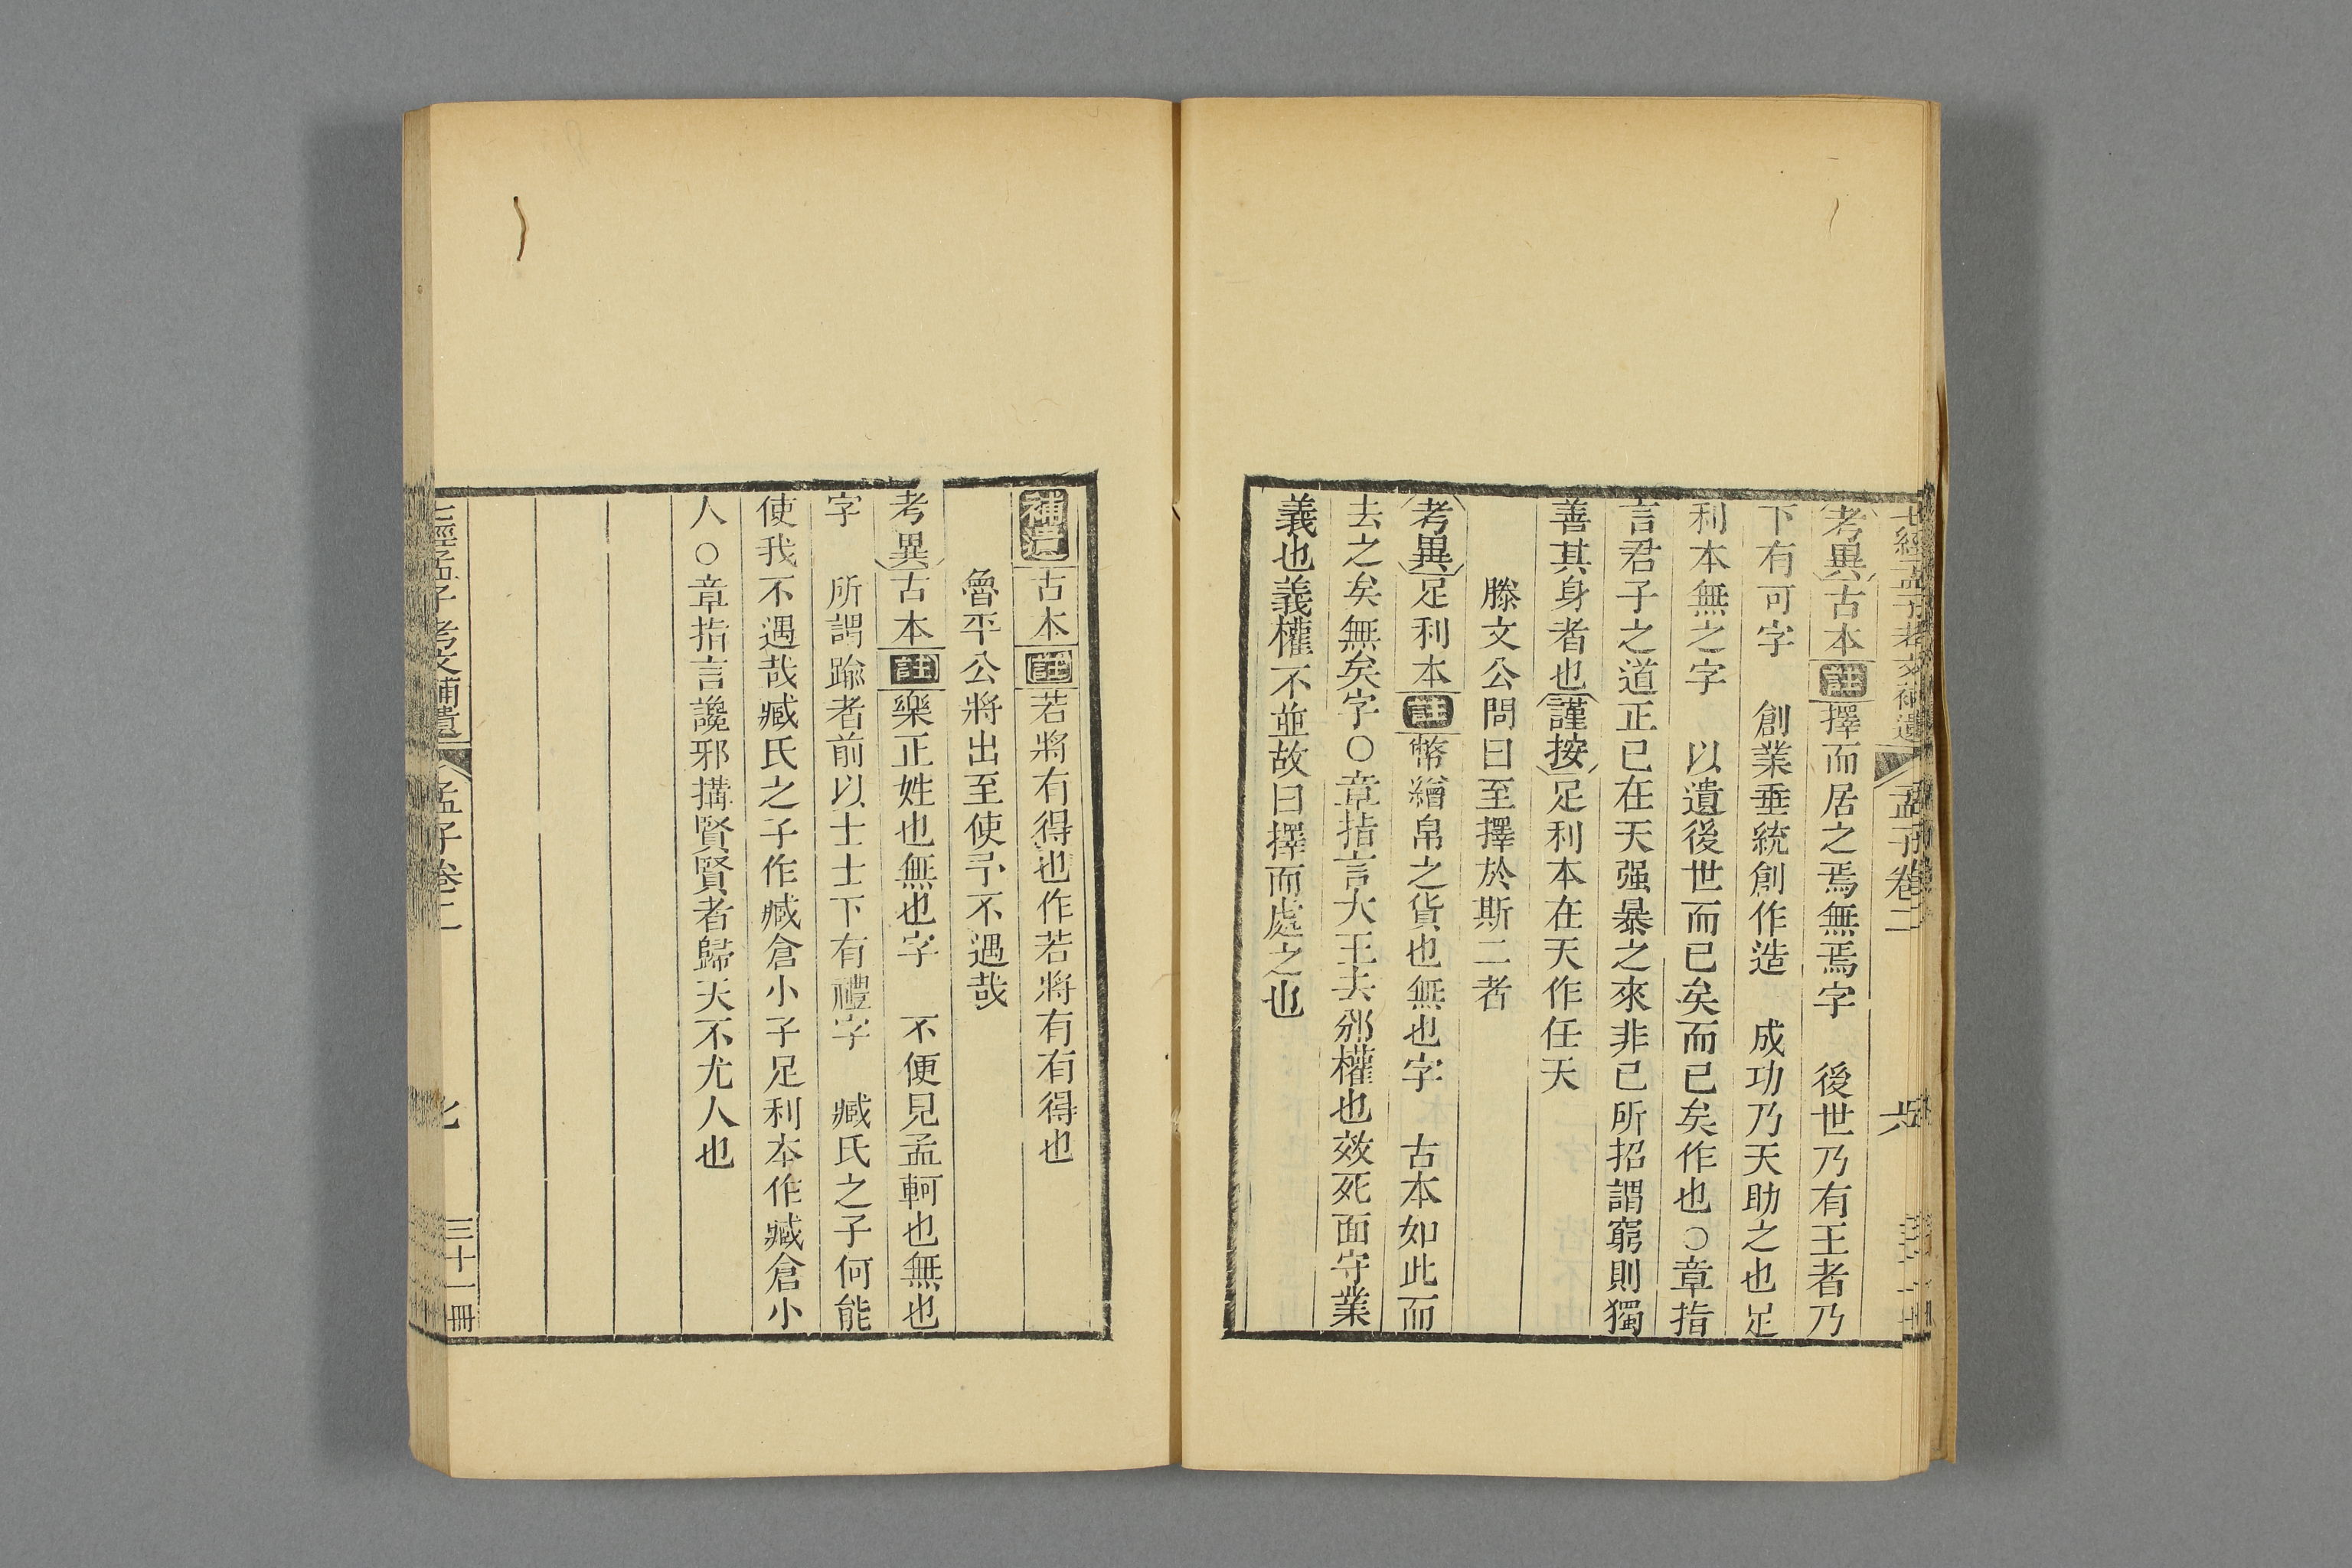 七經孟子考文補遺 孟子卷二 六
考異古本註擇而居之焉無焉字 後世乃有王者乃
下有可字 創業垂統創作造 成功乃天助之也足
利本無之字 以遺後世而已矣而已矣作也○章指
言君子之道正已在天强暴之來非已所招謂窮則獨
善其身者也謹按足利本在天作任天
滕文公問曰至擇於斯二者
考異足利本註幣繒帛之貨也無也字 古本如此而
去之矣無矣字○章指言大王去邠權也效死面守業
義也義權不並故曰擇而處之也
補遺古本註若將有得也作若將有有得也
魯平公將出至使予不遇哉
考異古本註樂正姓也無也字 不便見孟軻也無也
字 所謂踰者前以士士下有禮字 臧氏之子何能
使我不遇哉臧氏之子作臧倉小子足利本作臧倉小
人○章指言讒邪搆賢賢者歸天不尤人也
七經孟子考文補遺 孟子卷二 七 三十一冊